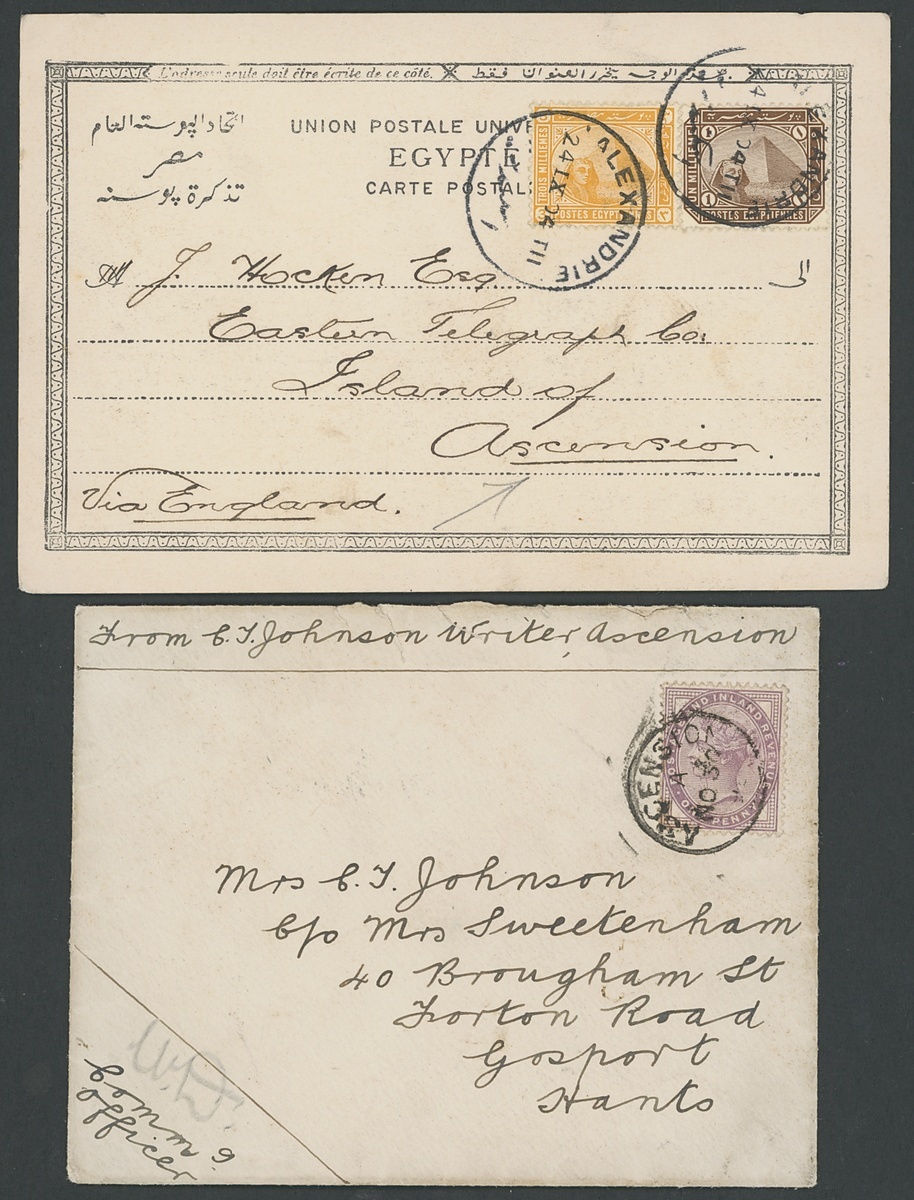 L'adresse seule doit être écrite de ce côté.
اتحاد البوسته العام
مصر
تذكرة بوسته
UNION POSTALE UNIV
EGYPTE
CARTE POSTAL
TROIS MILLIEMES
POSTES EGYPTIENNES
ALEXANDRIE
24 IX 04 TII
ALEXANDRIE
IX 04 TII
M J. Hocken Esq الى
Eastern Telegraph Co:
Island of
Ascension.
Via England.
From C.T. Johnson Writer, Ascension
POSTAGE AND INLAND REVENUE
ONE PENNY
ASCENSION
A
NO 30
Mrs C.T. Johnson
C/o Mrs Sweetenham
40 Brougham St
Forton Road
Gosport
Hants
Commg.
Officer